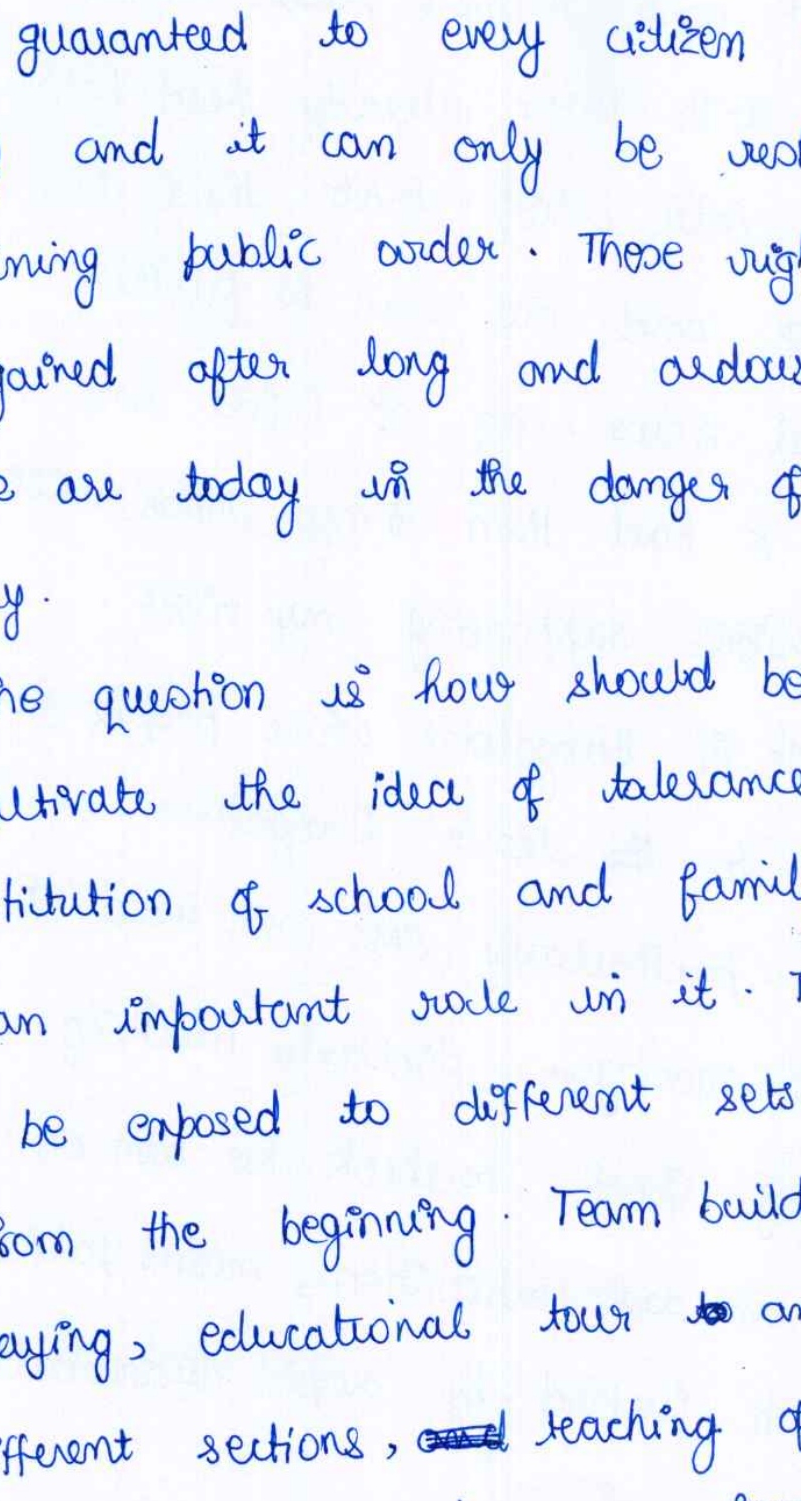 guaranteed to every citizen
and it can only be res
ning public order. Those righ
gained after long and ardous
e are today in the danger of
y.
he question is how should be
ultivate the idea of tolerance
titution of school and famil
an important role in it. T
be exposed to different sets
from the beginning. Team build
aying, educational tour to an
fferent sections, and teaching of